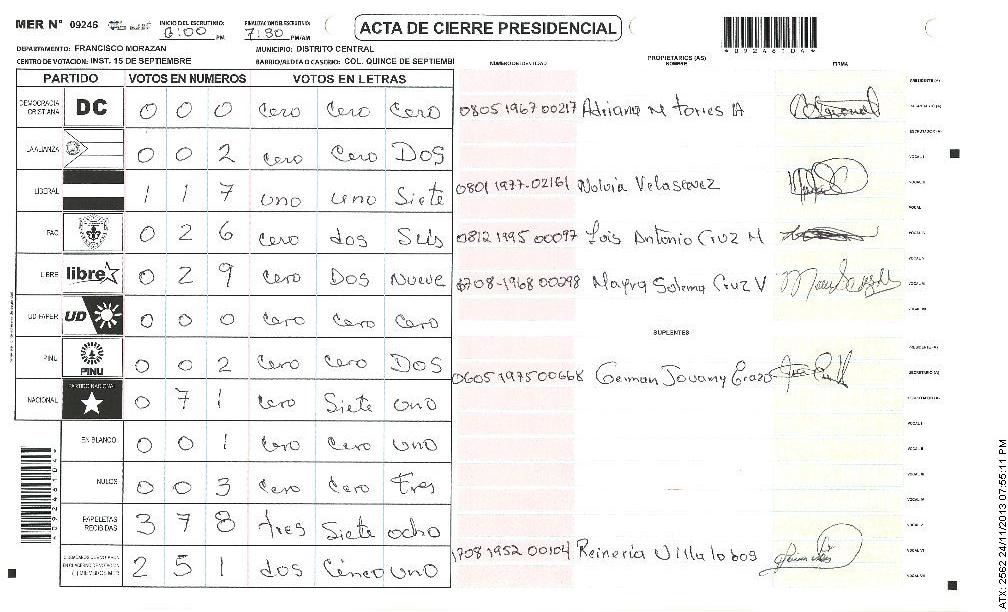 MER N° 09246
INICIO DEL ESCRUTINIO: 6:00 PM
FINALIZACION DEL ESCRUTINIO: 7:30 PM/AM
ACTA DE CIERRE PRESIDENCIAL
*09246104*
DEPARTAMENTO: FRANCISCO MORAZAN
MUNICIPIO: DISTRITO CENTRAL
CENTRO DE VOTACION: INST. 15 DE SEPTIEMBRE
BARRIO/ALDEA O CASERIO: COL. QUINCE DE SEPTIEMBI
PARTIDO VOTOS EN NUMEROS VOTOS EN LETRAS
DEMOCRACIA CRISTIANA DC 0 0 0 Cero Cero Cero
LA ALIANZA 0 0 2 Cero Cero DOS
LIBERAL 1 1 7 uno uno Siete
PAC 0 2 6 Cero dos Seis
LIBRE libre 0 2 9 Cero Dos Nueve
UD FAPER UD 0 0 0 Cero Cero Cero
PINU PINU 0 0 2 Cero Cero DOS
NACIONAL PARTIDO NACIONAL 0 7 1 Cero Siete uno
EN BLANCO 0 0 1 Cero Cero uno
NULOS 0 0 3 Cero Cero Tres
PAPELETAS RECIBIDAS 3 7 8 tres Siete ocho
2 5 1 dos Cinco uno
NUMERO DE IDENTIDAD
PROPIETARIOS (AS)
NOMBRE
FIRMA
0805 1967 00217 Adriana M Torres A
0801 1977-02161 Nolvia Velasquez
0812 1995 00097 Luis Antonio Cruz M
0708-1968 00298 Mayra Sulema Cruz V
SUPLENTES
0605 1975 00668 German Jovanny Erazo
1708 1952 00104 Reineria Villalobos
PRESIDENTE (A)
SECRETARIO (A)
ESCRUTADOR (A)
VOCAL I
VOCAL II
ATX: 2562 24/11/2013 07:55:11 PM